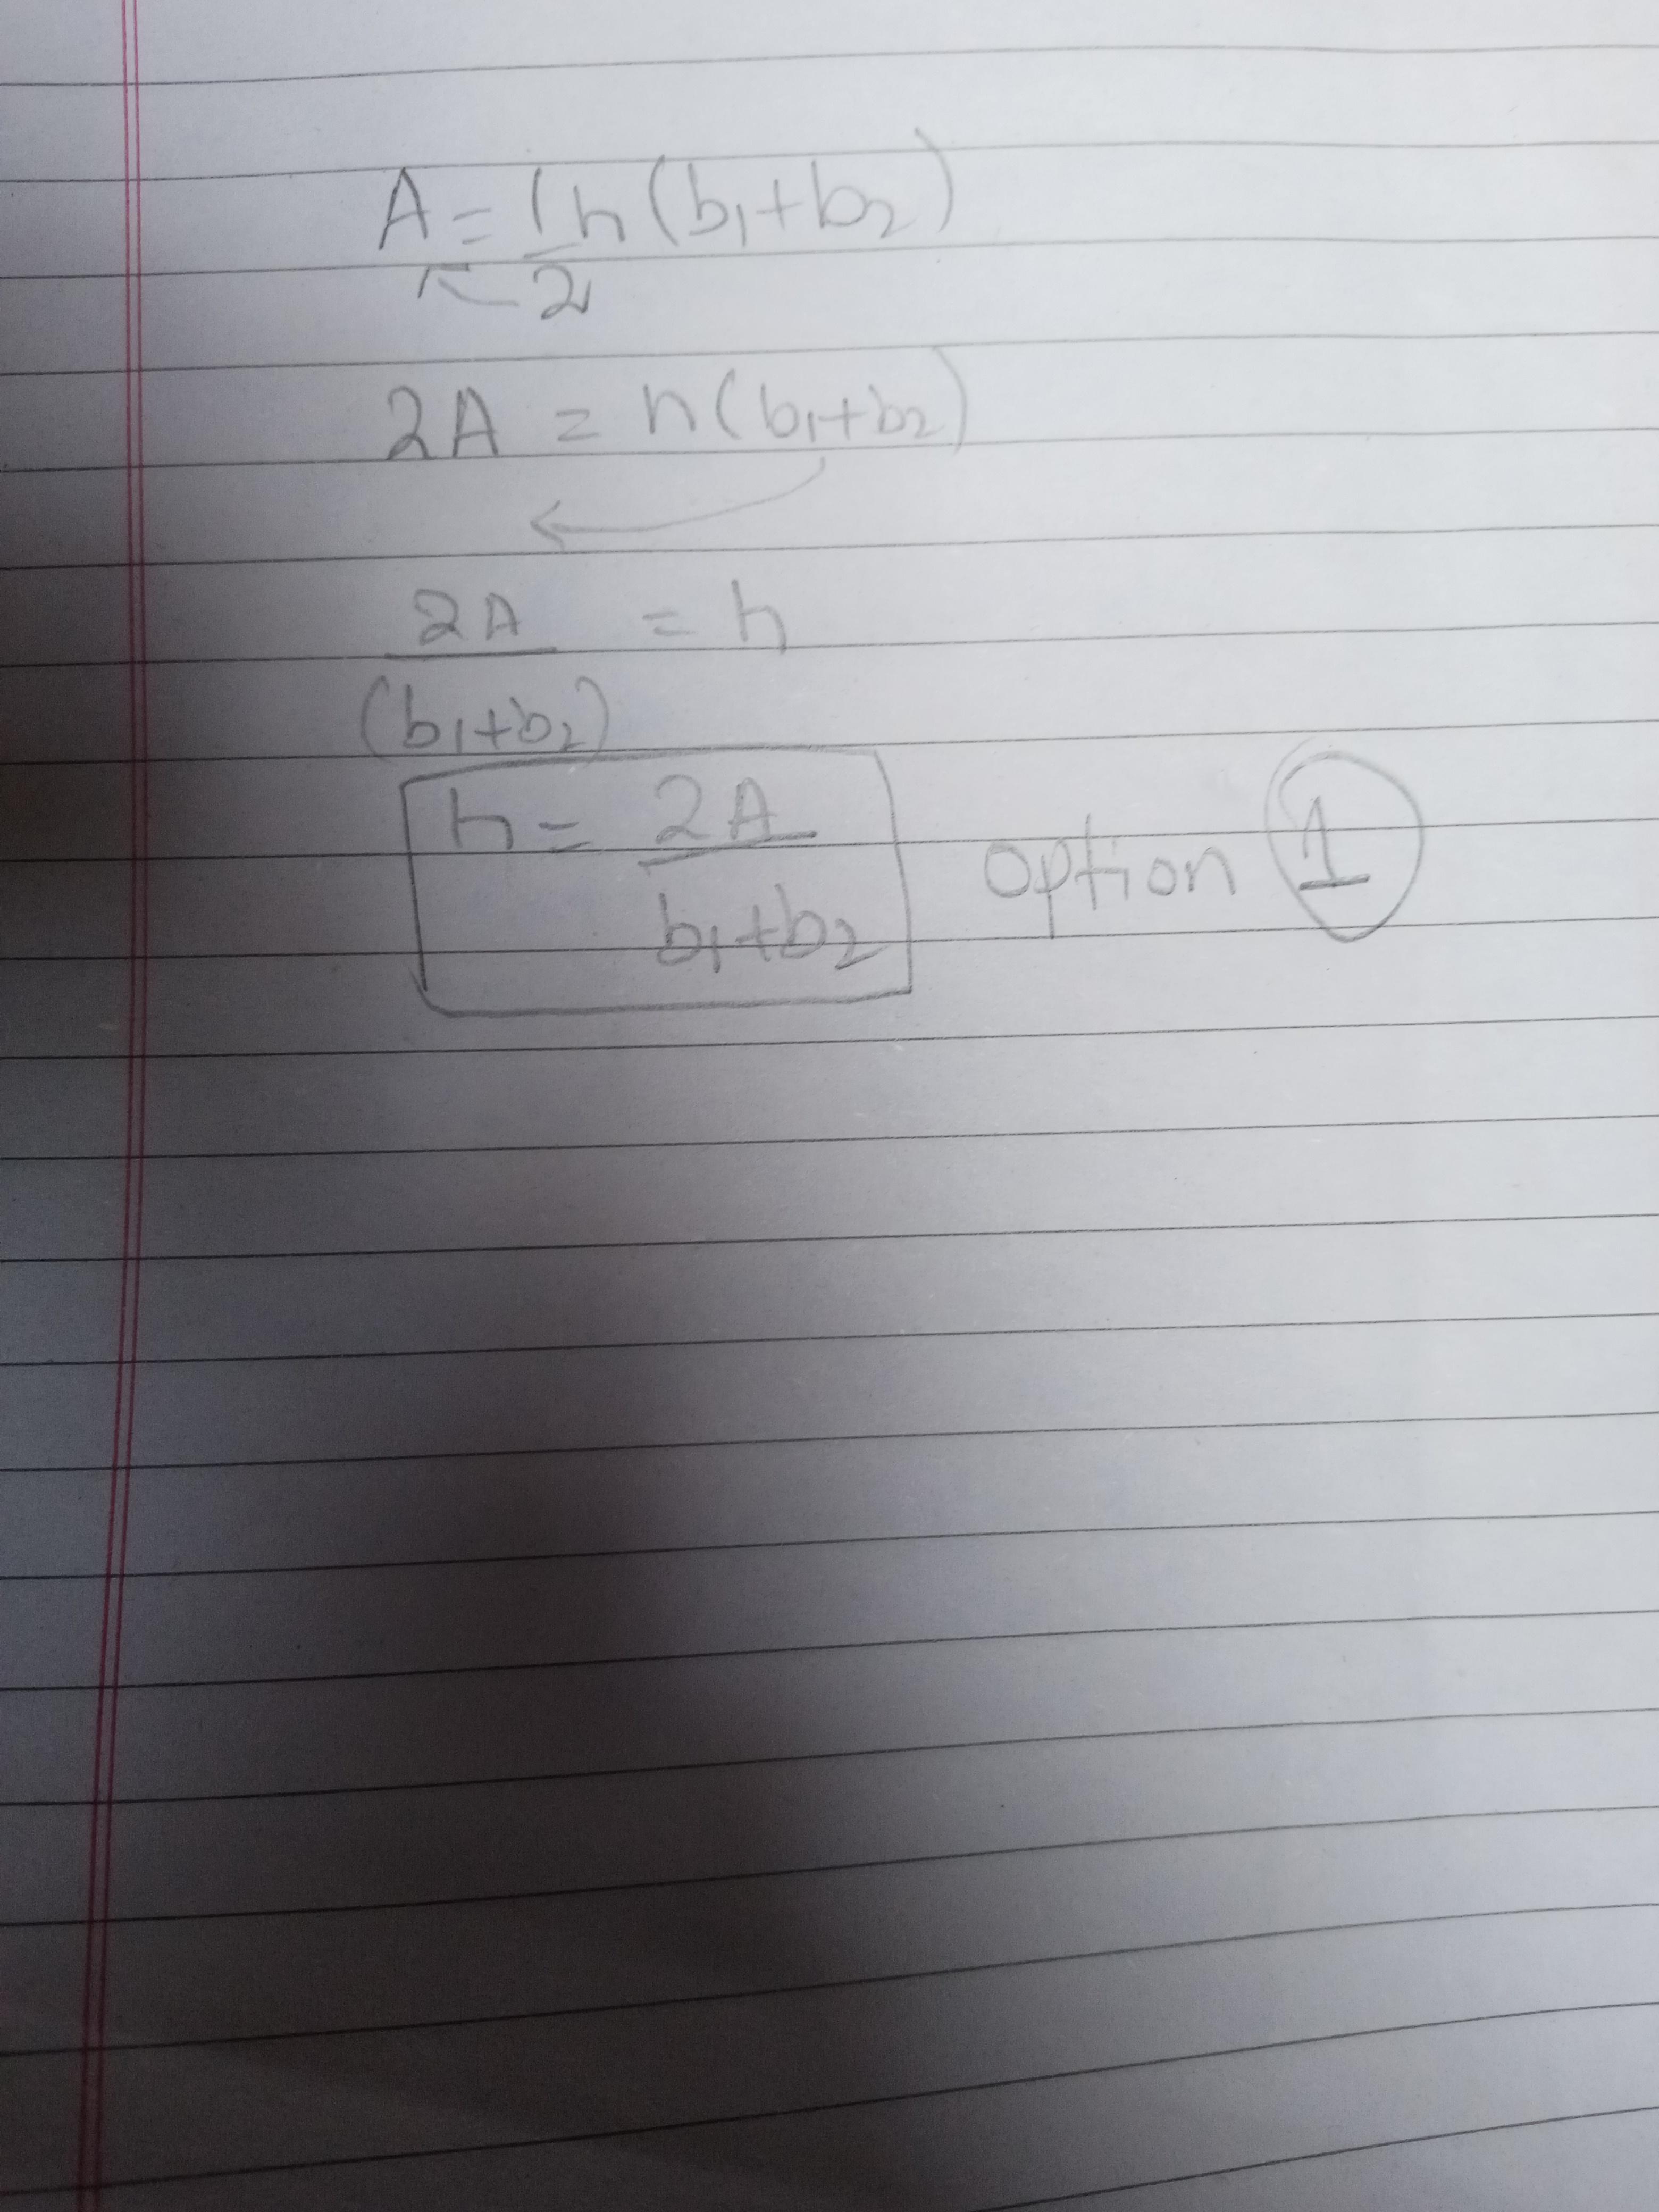 A = 1/2 h (b₁+b₂)
2A = h(b₁+b₂)
2A/(b₁+b₂) = h
h = 2A/b₁+b₂ option 1